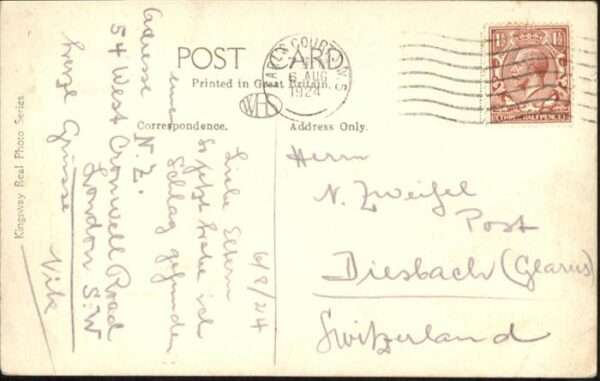 POST CARD
Printed in Great Britain.
WHS
EARL'S COURT S.W.5
6 AUG
1924
THREE HALFPENCE
Correspondence.
Address Only.
Kingsway Real Photo Series
6/8/24
Liebe Eltern
So jetzt habe ich
Schlag gefunden
meine
Adresse N. Z.
54 West Cromwell Road
London S.W
Herzl Grüsse
Herrn
N. Zweifel
Post
Diesbach (Glarus)
Switzerland